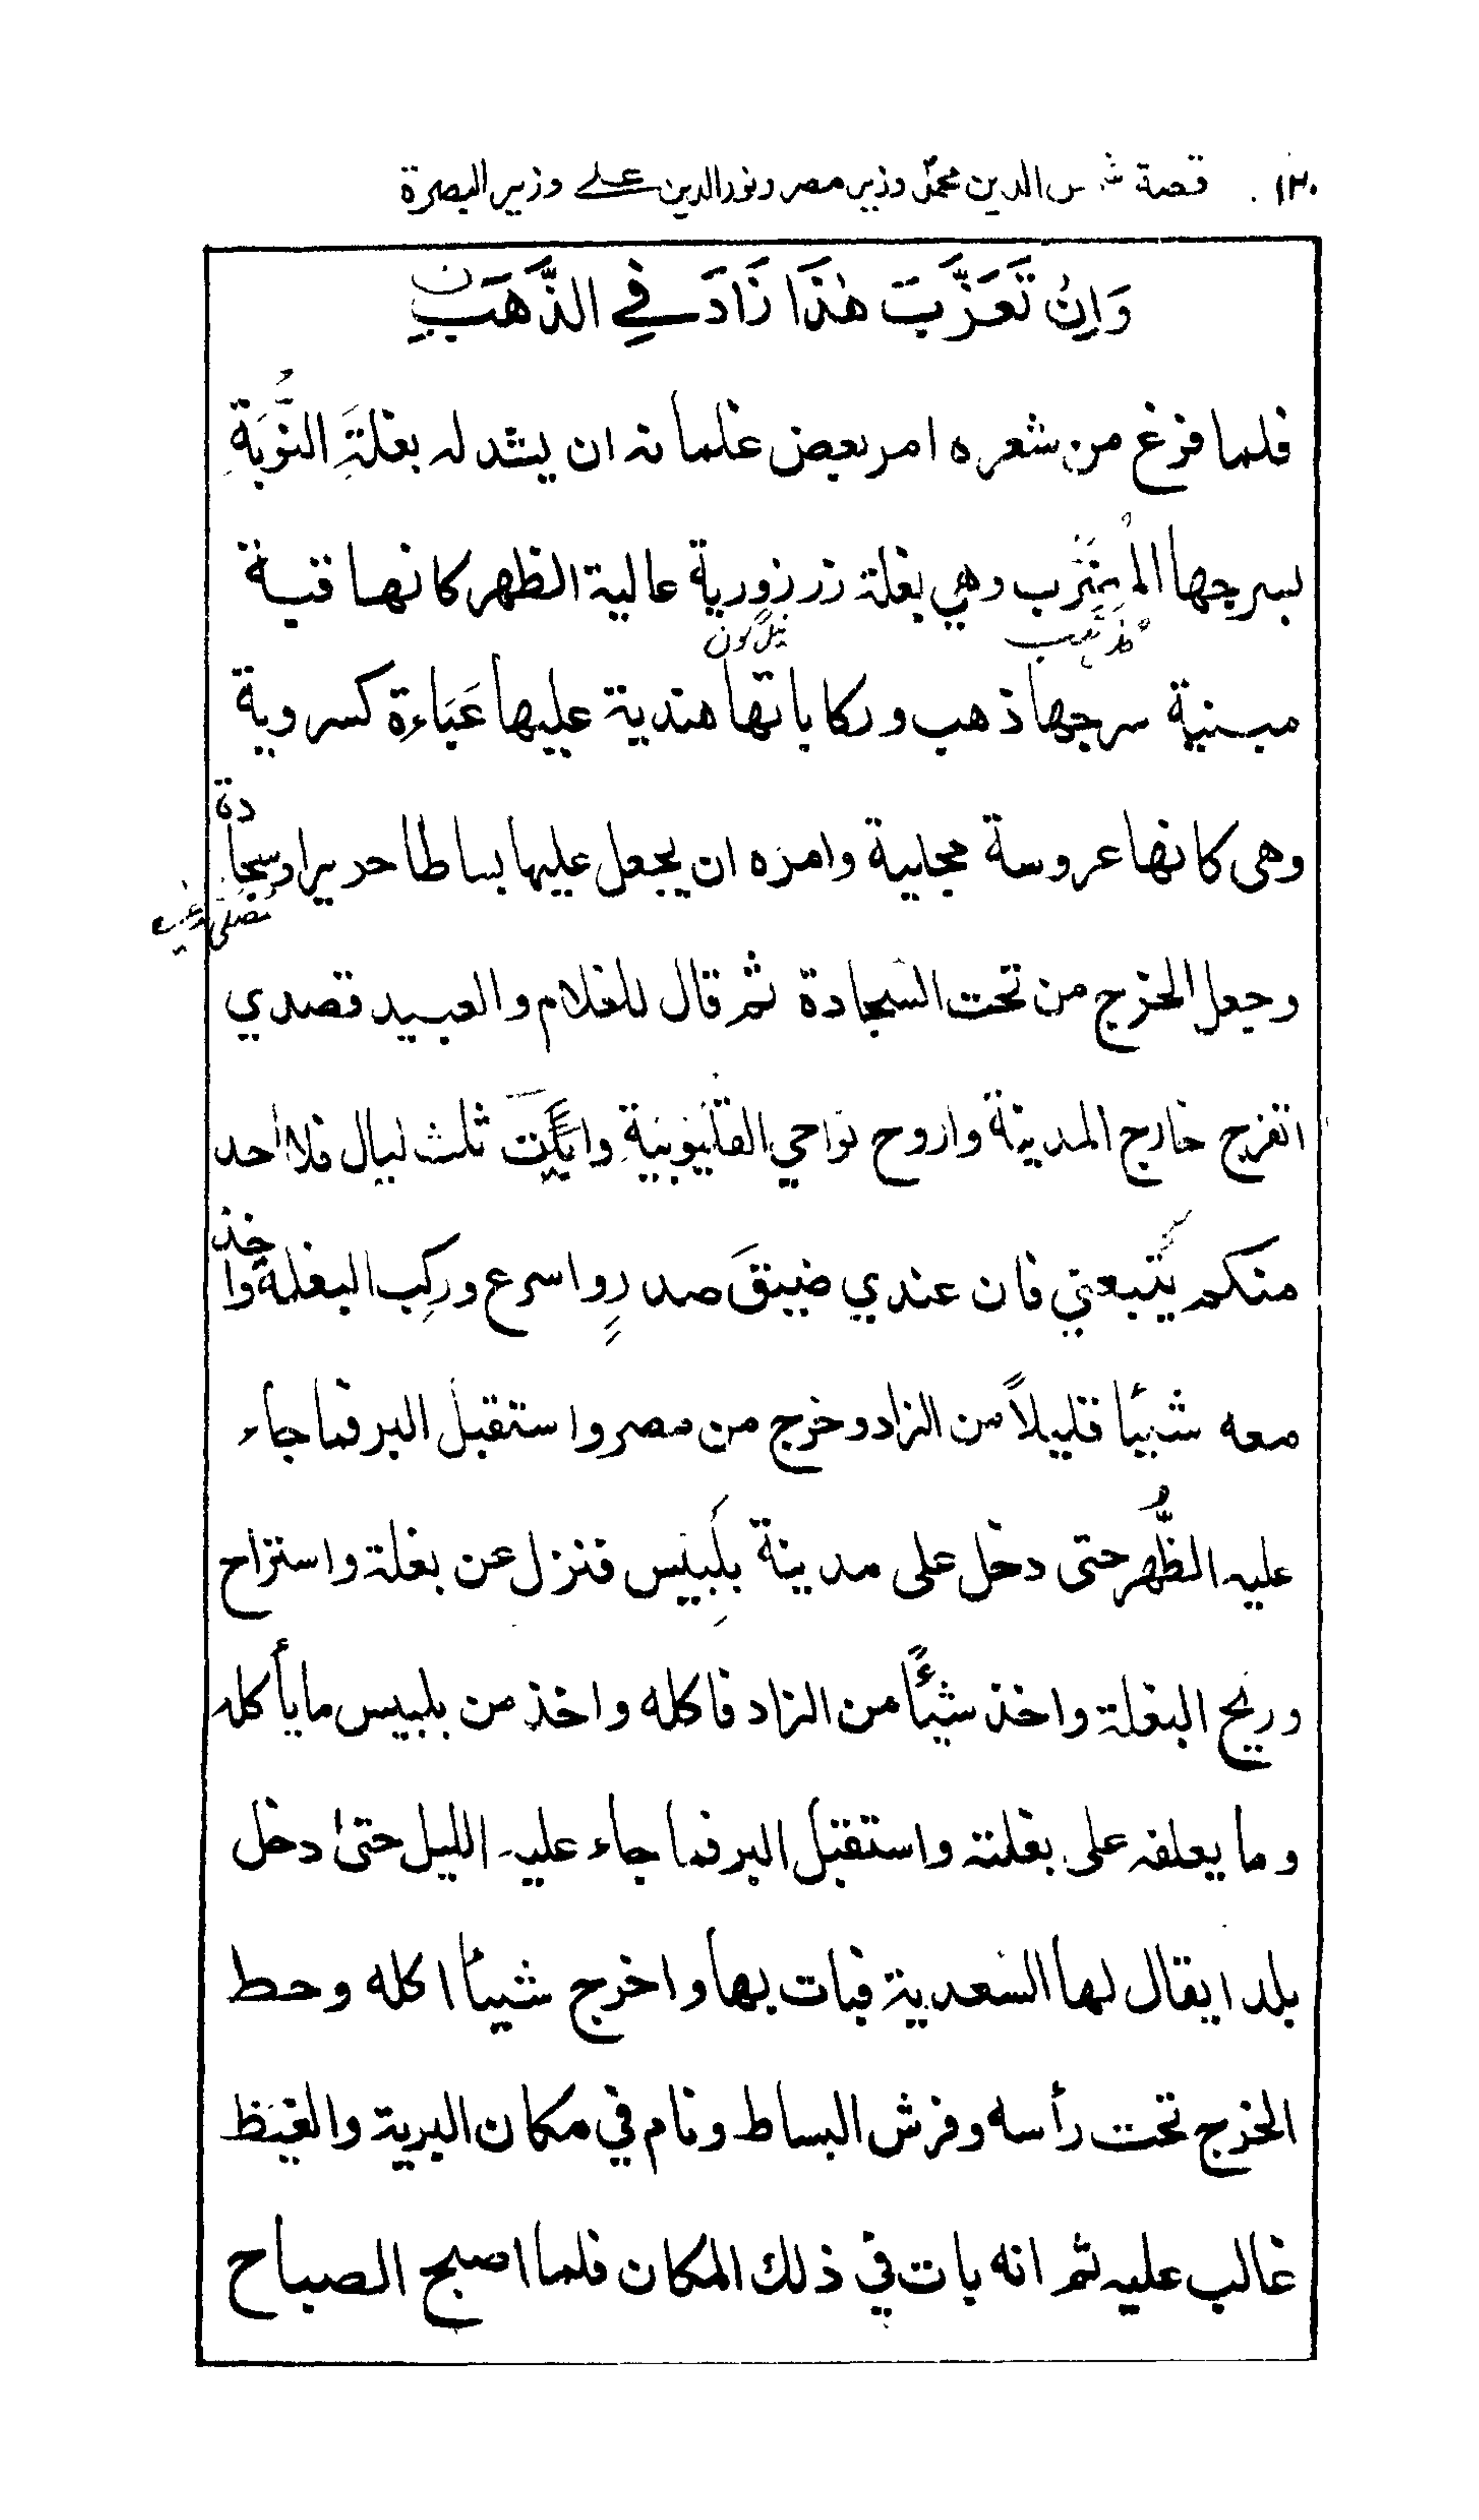 ١٣٠ قصة شمس الدين محمد وزير مصر ونور الدين على وزير البصرة
وَاِنْ تَعَزَّبَ هٰذَا زَادَ فِي الذَّهَبِ
فلما فرغ من شعره امر بعض غلمانه ان يشد له بغلةِ النُّوبَةِ
بسرجها وهي بغلة زرزورية عالية الظهر كانها قبة
مبنية سرجها ذهب وركاباتها هندية عليها عَبَاءة كسروية
وهى كانها عروسة مجلية وامره ان يجعل عليها بساطا حريرا وسجادة
وجعل الخرج من تحت السجادة ثم قال للغلام والعبيد قصدي
اتفرج خارج المدينة واروح نواحي القَليُوبيَةِ وابيت ثلث ليال فلا احد
منكم يَّتبعني فان عندي ضيقَ صدرٍ واسرع وركِب البغلة واخذ
معه شيئًا قليلاً من الزاد وخرج من مصر واستقبل البر فما جاء
عليه الظُّهر حتى دخل على مدينة بِلبيَس فنزل عن بغلة واستراح
وريح البغلة واخذ شيئًا من الزاد فاكله واخذ من بلبيس ما يأكله
وما يعلفه على بغلته واستقبل البر فما جاء عليه الليل حتى دخل
بلدا يقال لها السَعدية فبات بها واخرج شيئا اكله وحط
الخرج تحت رأسه وفرش البساط ونام في مكان البرية والغيَظ
غالب عليه ثم انه بات في ذلك المكان فلما اصبح الصباح